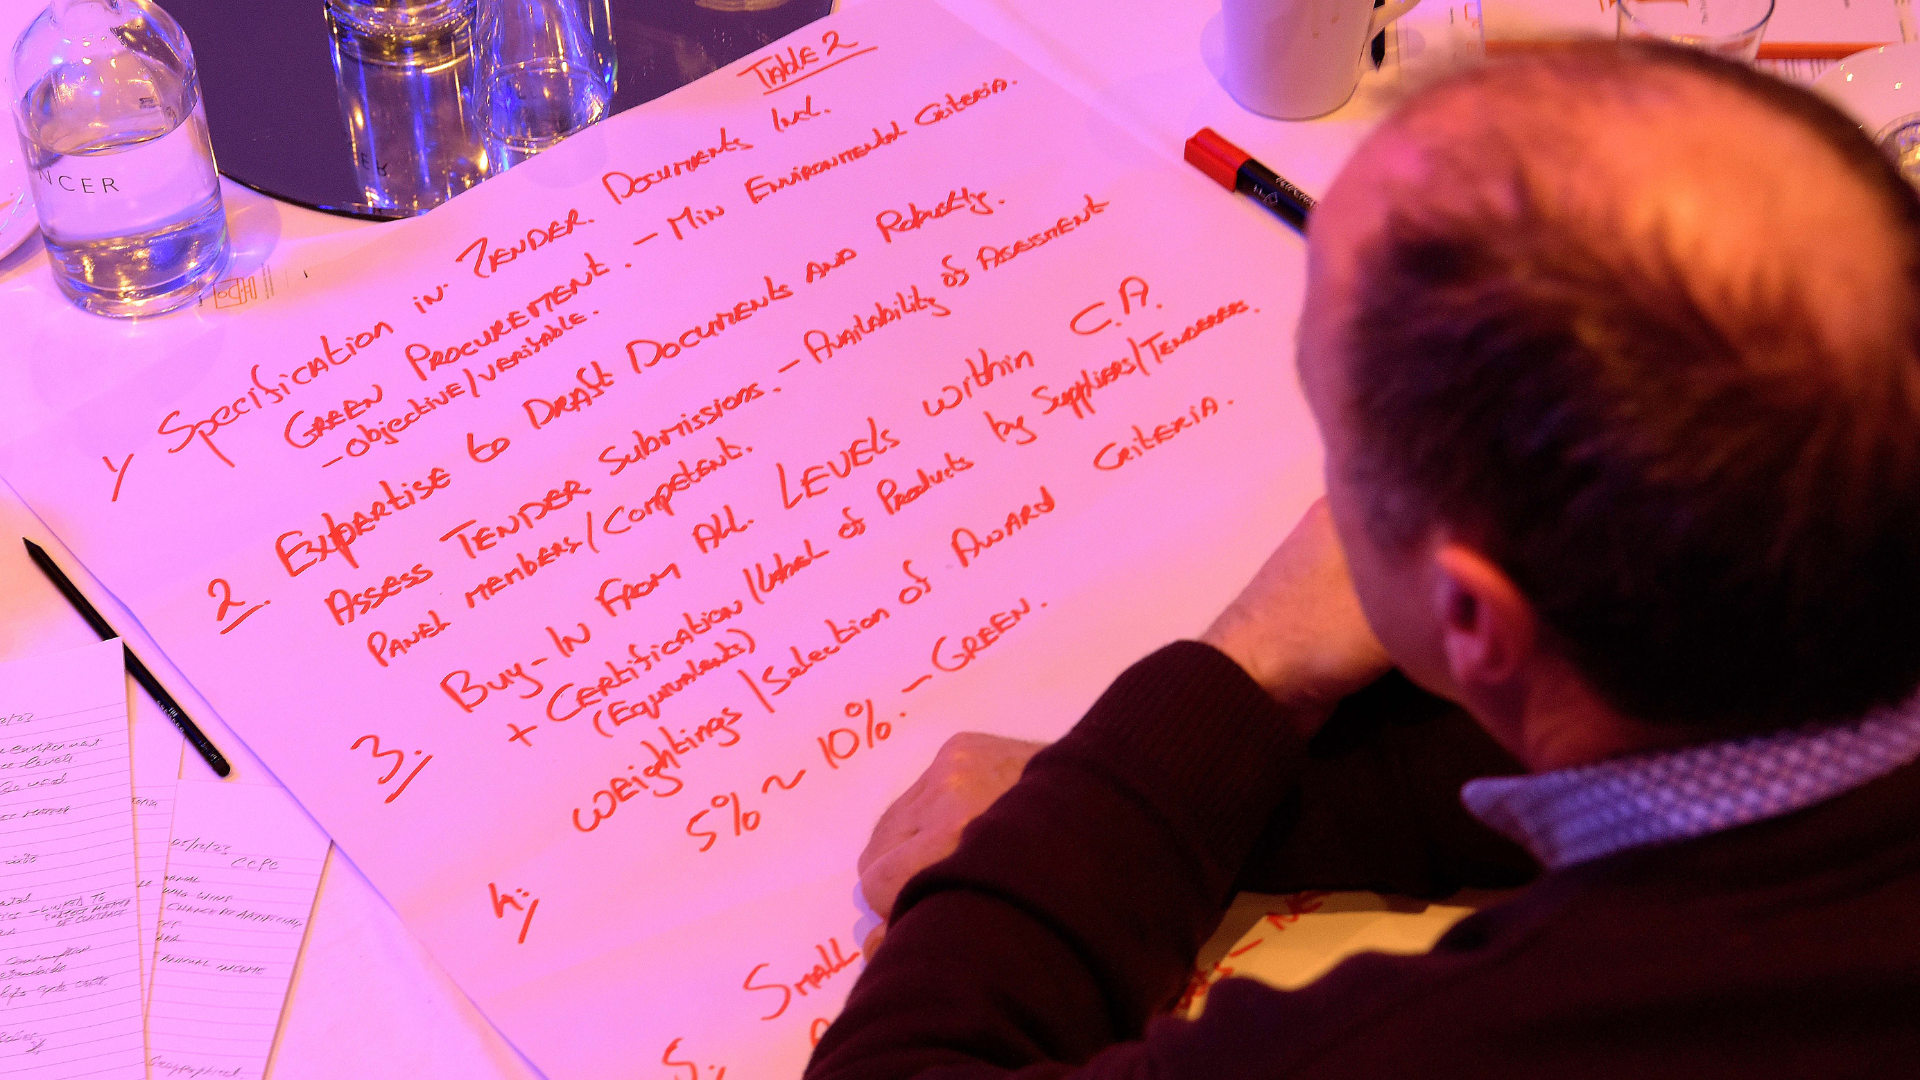 NCER
Table 2
1) Specification in Tender Documents Incl.
Green Procurement. - Min Environmental Criteria.
- Objective/verifable.
2. Expertise to Draft Documents and Robustly.
Assess Tender Submissions. - Availability of Assessment
Panel members/Competent.
3. Buy-In From All Levels within C.A.
+ Certification/Label of Products by Suppliers/Tenderer.
(Equivalents)
4. Weightings/Selection of Award Criteria.
5% ~ 10%. - Green.
5. Small
05/12/23
CCPC
WHO WINS
ANNUAL INCOME
- LINKED TO
OF CONTRACT
Geographical